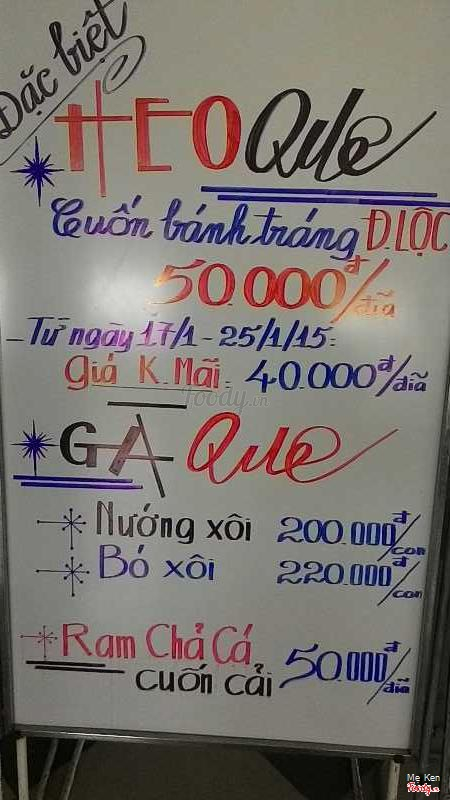 Đặc biệt
HEO Que
Cuốn bánh tráng Đ.LỘC
50.000đ/đĩa
Từ ngày 17/1 - 25/1/15:
giá K.Mãi 40.000đ/đĩa
Foody.vn
GÀ Que
Nướng xôi 200.000đ/con
Bó xôi 220.000đ/con
Ram Chả Cá
cuốn cải 50.000đ/đĩa
Me Ken
Foody.vn